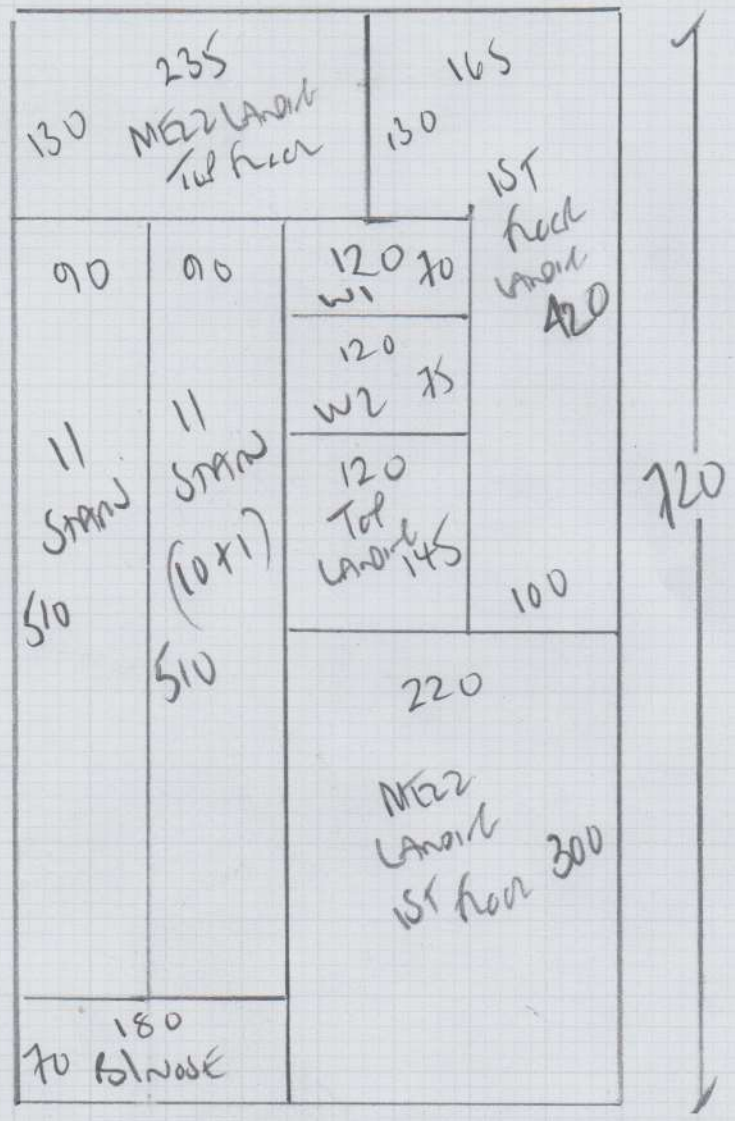 235
130 MEZZ LANDING
TOP FLOOR
165
130
1ST
FLOOR
LANDING
420
90
11
STAIRS
510
90
11
STAIRS
(10+1)
510
120 70
W1
120
W2 75
120
TOP
LANDING 145
100
720
220
MEZZ
LANDING
1ST FLOOR 300
180
70 B/NOSE